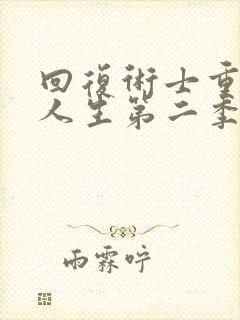 回復術士重
人生第二季
雨霖咛